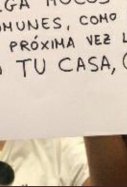 MOCOS
OMUNES, COMO
PRÓXIMA VEZ L
TU CASA, (